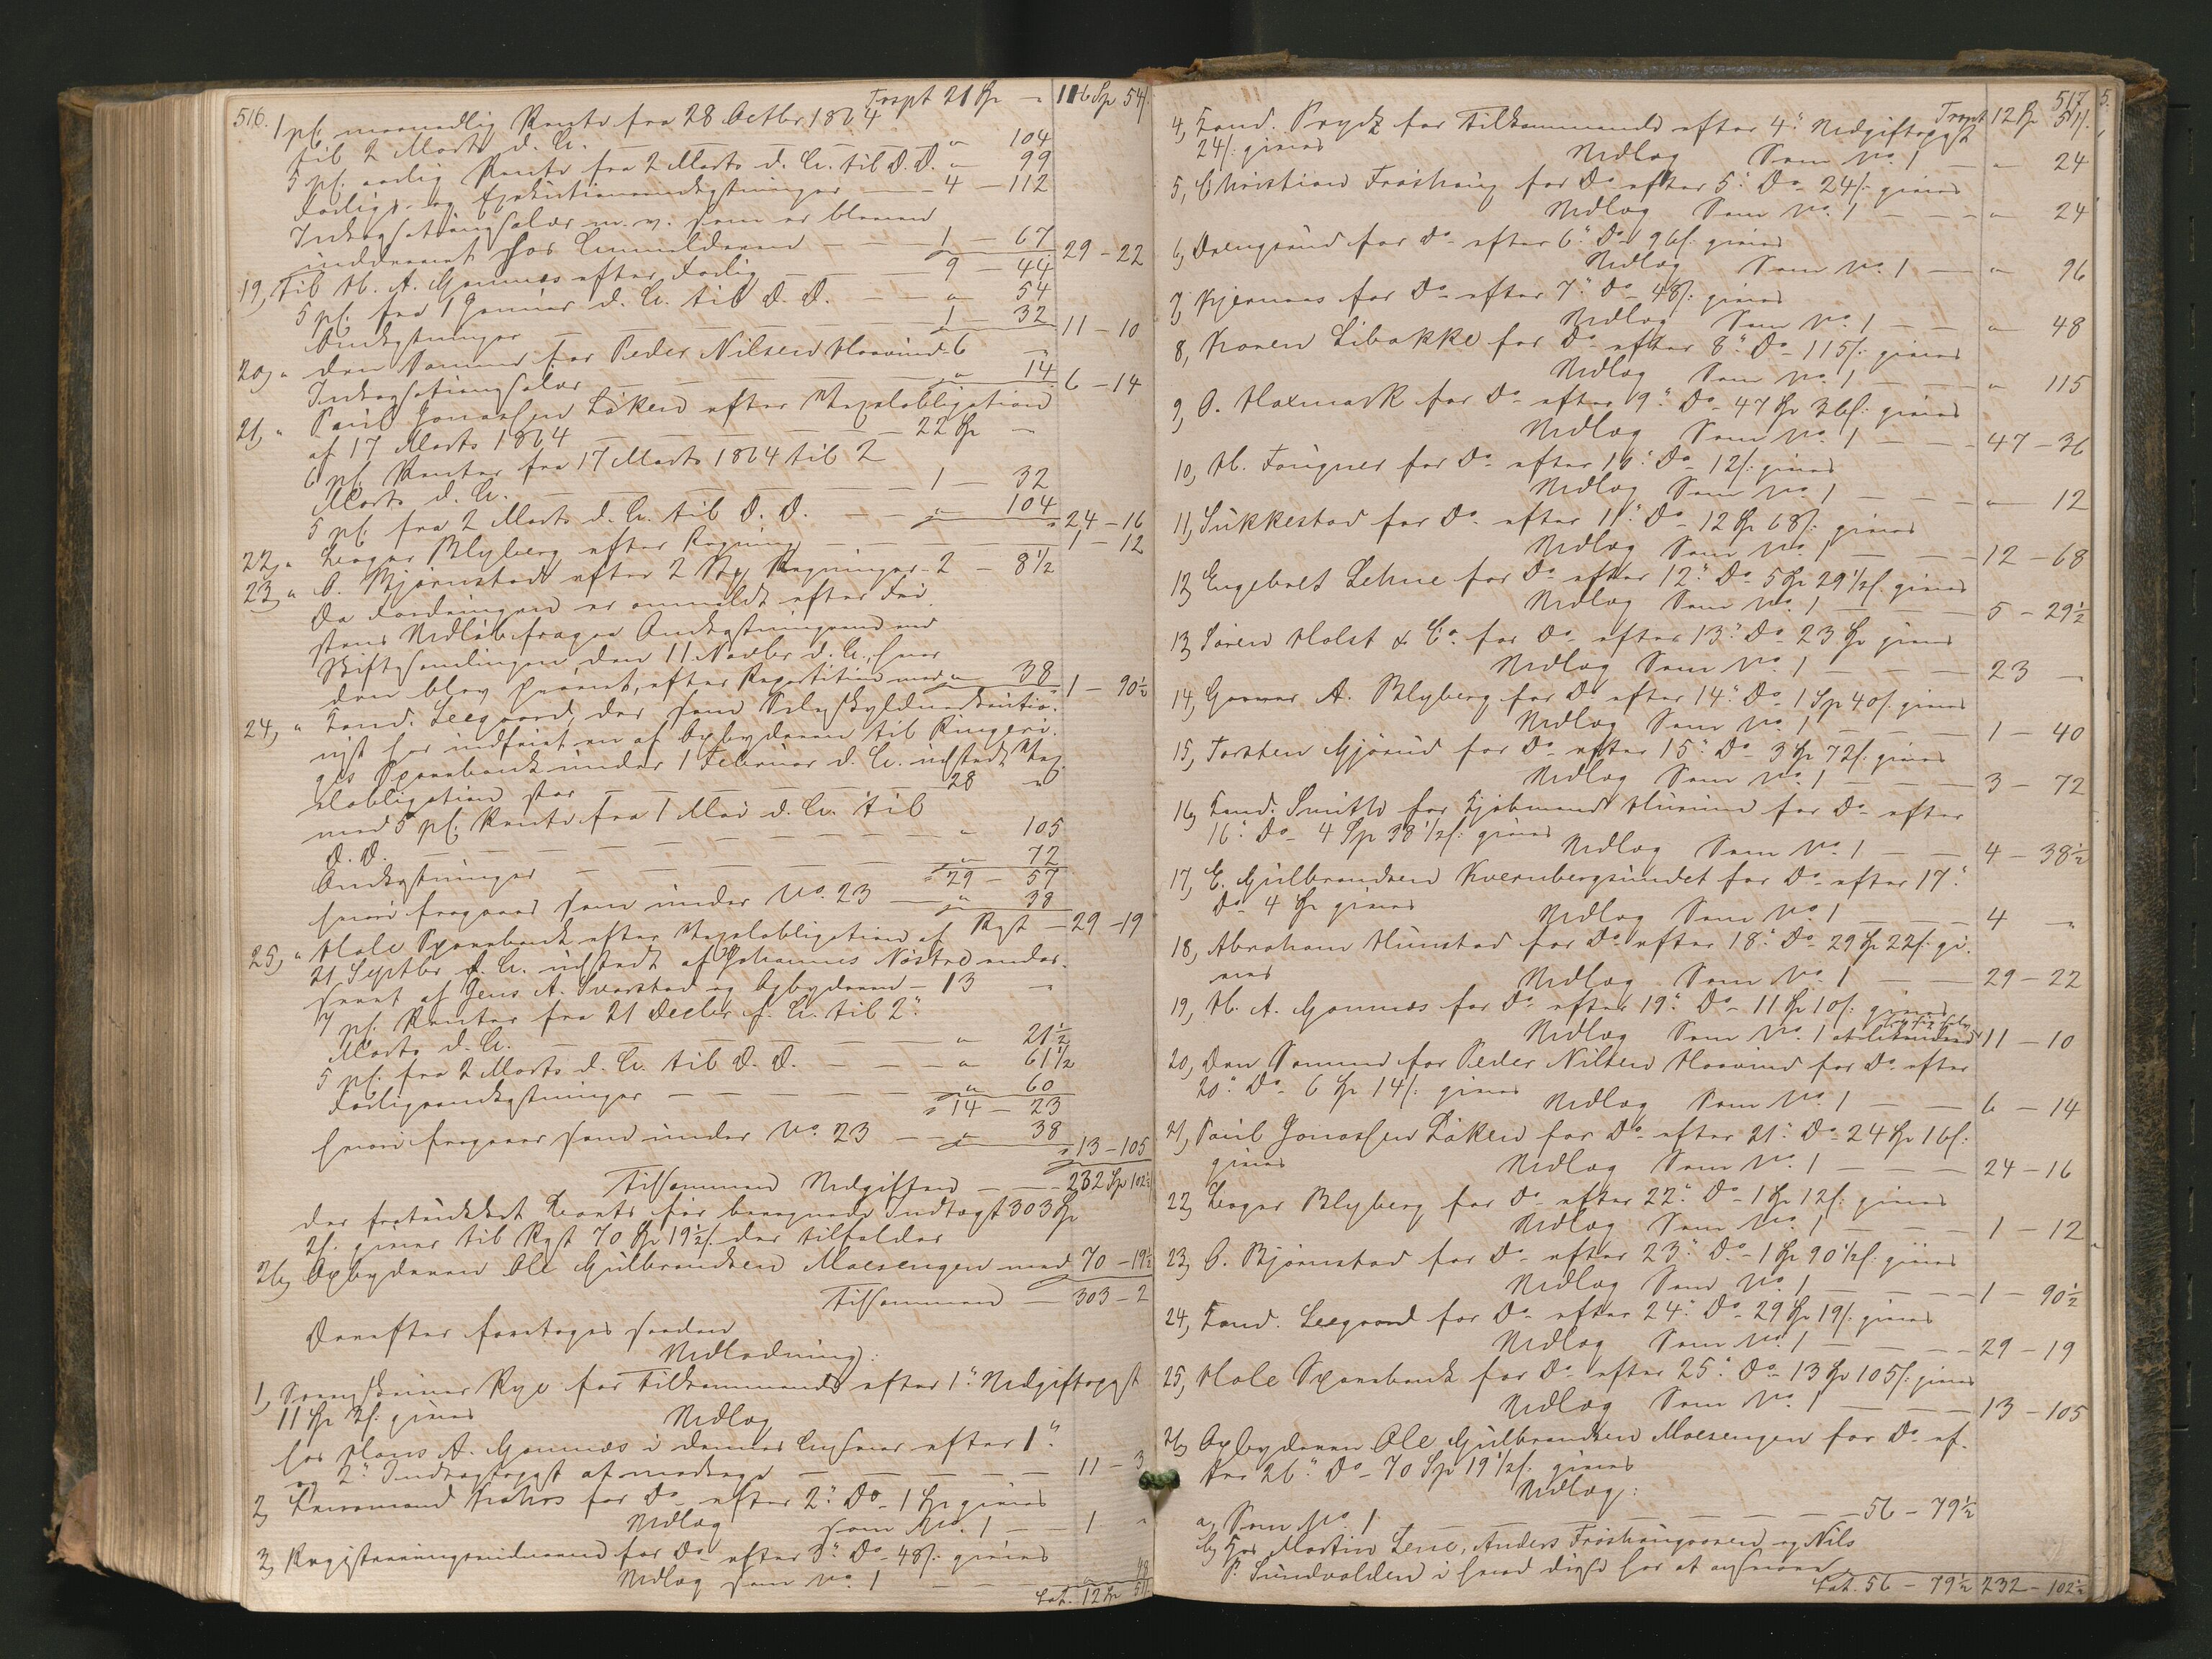 516.
Trspt 21 Sp - 116 Sp 54
1 pC. maanedlig Rente fra 28 Octbr 1864
til 2 Marts d. A. — — — " 104
5 pC. aarlig Rente fra 2 Marts d. A. til D. D. " 99
Forligs- og Executionsomkostninger — 4 — 112
Inkassationssalær m. v. som er bleven
inddrevet hos Anmelderen — — 1 — 67 29 - 22
19, Til H. A. Gomnæs efter Forlig — 9 — 44
5 pC. fra 1 Januar d. A. til D. D. — — " 54
Omkostninger — — — 1 — 32 11 - 10
20, " den Samme for Peder Nilsen Haavind 6 —
Inkassationssalær — — — " 14 6 - 14
21, " Paul Jonassen Løken efter Vexelobligation
af 17 Marts 1864 — — — 22 Sp —
6 pC. Renter fra 17 Marts 1864 til 2
Marts d. A. — — — 1 — 32
5 pC. fra 2 Marts d. A. til D. D. — — " 104 24 - 16
22, " Lager Blyberg efter Regning — — — 1 - 12
23, " O. Bjørnstad efter 2 Stk Regninger 2 — 8 1/2
Da Fordringen er anmeldt efter Fri-
stens Udløb fragaar Omkostningerne ved
Skiftesamlingen den 11 Novbr d. A., hvor
den blev prøvet, efter Repartition med " 38 1 - 90 1/2
24, " Land. Leegaard, der som Selvskyldnerkautio-
nist har indfriet en af Opbyderen til Ringeri-
ges Sparebank under 1 Februar d. A. udstedt Vex-
elobligation stor — — — 28 "
med 5 pC. Rente fra 1 Mai d. A. til
D. D. — — — " 105
Omkostninger — — — " 72
29 — 57
hvori fragaaes som under No. 23 — " 38
Rest — 29 - 19
25, " Hole Sparebank efter Vexelobligation af
21 Septbr f. A. udstedt af Johannes Næstre endos-
seret af Jens A. Svarstad og Opbyderen — 13 "
7 pC. Renter fra 21 Decbr f. A. til 2
Marts d. A. — — — " 21 1/2
5 pC. fra 2 Marts d. A. til D. D. — — — " 61 1/2
Forligsomkostninger — — — " 60
14 — 23
hvori fragaaer som under No. 23 — — " 38 13 - 105
Tilsammen Udgiften — — 232 Sp 102 1/2
der fratrukket Boets før beregnede Indtægt 303 Sp
2 s. giver til Rest 70 Sp 19 1/2 s. der tilfalder
26, Opbyderen Ole Gulbrandsen Moesengen med 70 - 19 1/2
Tilsammen — 303 - 2
Derefter foretoges saadan
Udlodning:
1, Sorenskriver Rye for Tilkommende efter 1 Udgiftspost
11 Sp 3 s. gives Udlæg
hos Hans A. Gomnæs i dennes Ansvar efter 1
og 2 Indtægtspost at modtage — — — 11 - 3
2, for Do efter 2 Do 1 Sp gives
Udlæg som No. 1 — — 1 "
3, for Do efter 3 Do 48 s. gives
Udlæg som No. 1 — — — " 48
Lat. 12 Sp 51
517
Trspt 12 Sp 51 s.
4, Land. Prydz for Tilkommende efter 4 Udgiftspost
24 s. gives Udlæg Som No. 1 — " 24
5, Christian Frøshaug for Do efter 5 Do 24 s. gives
Udlæg Som No. 1 — — — " 24
6, for Do efter 6 Do 96 s. gives
Udlæg Som No. 1 — " 96
7, Kjernaas for Do efter 7 Do 48 s. gives
Udlæg Som No. 1 — — " 48
8, Karen Libakke for Do efter 8 Do 115 s. gives
Udlæg Som No. 1 — — — " 115
9, O. Haxmark for Do efter 9 Do 47 Sp 36 s. gives
Udlæg Som No. 1 — — — 47 - 36
10, H. Fougner for Do efter 10 Do 12 s. gives
Udlæg Som No. 1 — — — " 12
11, Sukkestad for Do efter 11 Do 12 Sp 68 s. gives
Udlæg Som No. 1 — — — 12 - 68
12, Engebret Lehne for Do efter 12 Do 5 Sp 29 1/2 s. gives
Udlæg Som No. 1 — — — 5 - 29 1/2
13, Søren Holst & Co. for Do efter 13 Do 23 Sp gives
Udlæg Som No. 1 — — 23 "
14, Garver A. Blyberg for Do efter 14 Do 1 Sp 40 s. gives
Udlæg Som No. 1 — — — 1 - 40
15, Torsten Gjørud for Do efter 15 Do 3 Sp 72 s. gives
Udlæg Som No. 1 — — — 3 - 72
16, Land. Smith for Kjøbmand Hurum for Do efter
16 Do 4 Sp 38 1/2 s. gives Udlæg Som No. 1 — — 4 - 38 1/2
17, E. Gulbrandsen Kvernbergsundet for Do efter 17
Do 4 Sp gives Udlæg Som No. 1 — — — 4 "
18, Abraham Hunstad for Do efter 18 Do 29 Sp 22 s. gi-
ves Udlæg Som No. 1 — — 29 - 22
19, H. A. Gomnæs for Do efter 19 Do 11 Sp 10 s. gives
Udlæg Som No. 1 11 - 10
20, Den Samme for Peder Nilsen Haavind for Do efter
20 Do 6 Sp 14 s. gives Udlæg Som No. 1 — — 6 - 14
21, Paul Jonassen Løken for Do efter 21 Do 24 Sp 16 s.
gives Udlæg Som No. 1 — — — 24 - 16
22, Lager Blyberg for Do efter 22 Do 1 Sp 12 s. gives
Udlæg Som No. 1 — — — 1 - 12
23, O. Bjørnstad for Do efter 23 Do 1 Sp 90 1/2 s. gives
Udlæg Som No. 1 — — — 1 - 90 1/2
24, Land. Leegaard for Do efter 24 Do 29 Sp 19 s. gives
Udlæg Som No. 1 — — — 29 - 19
25, Hole Sparebank for Do efter 25 Do 13 Sp 105 s. gives
Udlæg Som No. 1 — — — 13 - 105
26, Opbyderen Ole Gulbrandsen Moesengen for Do ef-
ter 26 Do 70 Sp 19 1/2 s. gives
Udlæg:
a, Som No. 1 — — — 56 - 79 1/2
b, Hos Martin Lene, Anders Frøshaugøren og Nils
P. Sundvolden i hvad disse har at ansvare
Lat. 56 - 79 1/2 232 - 102 1/2